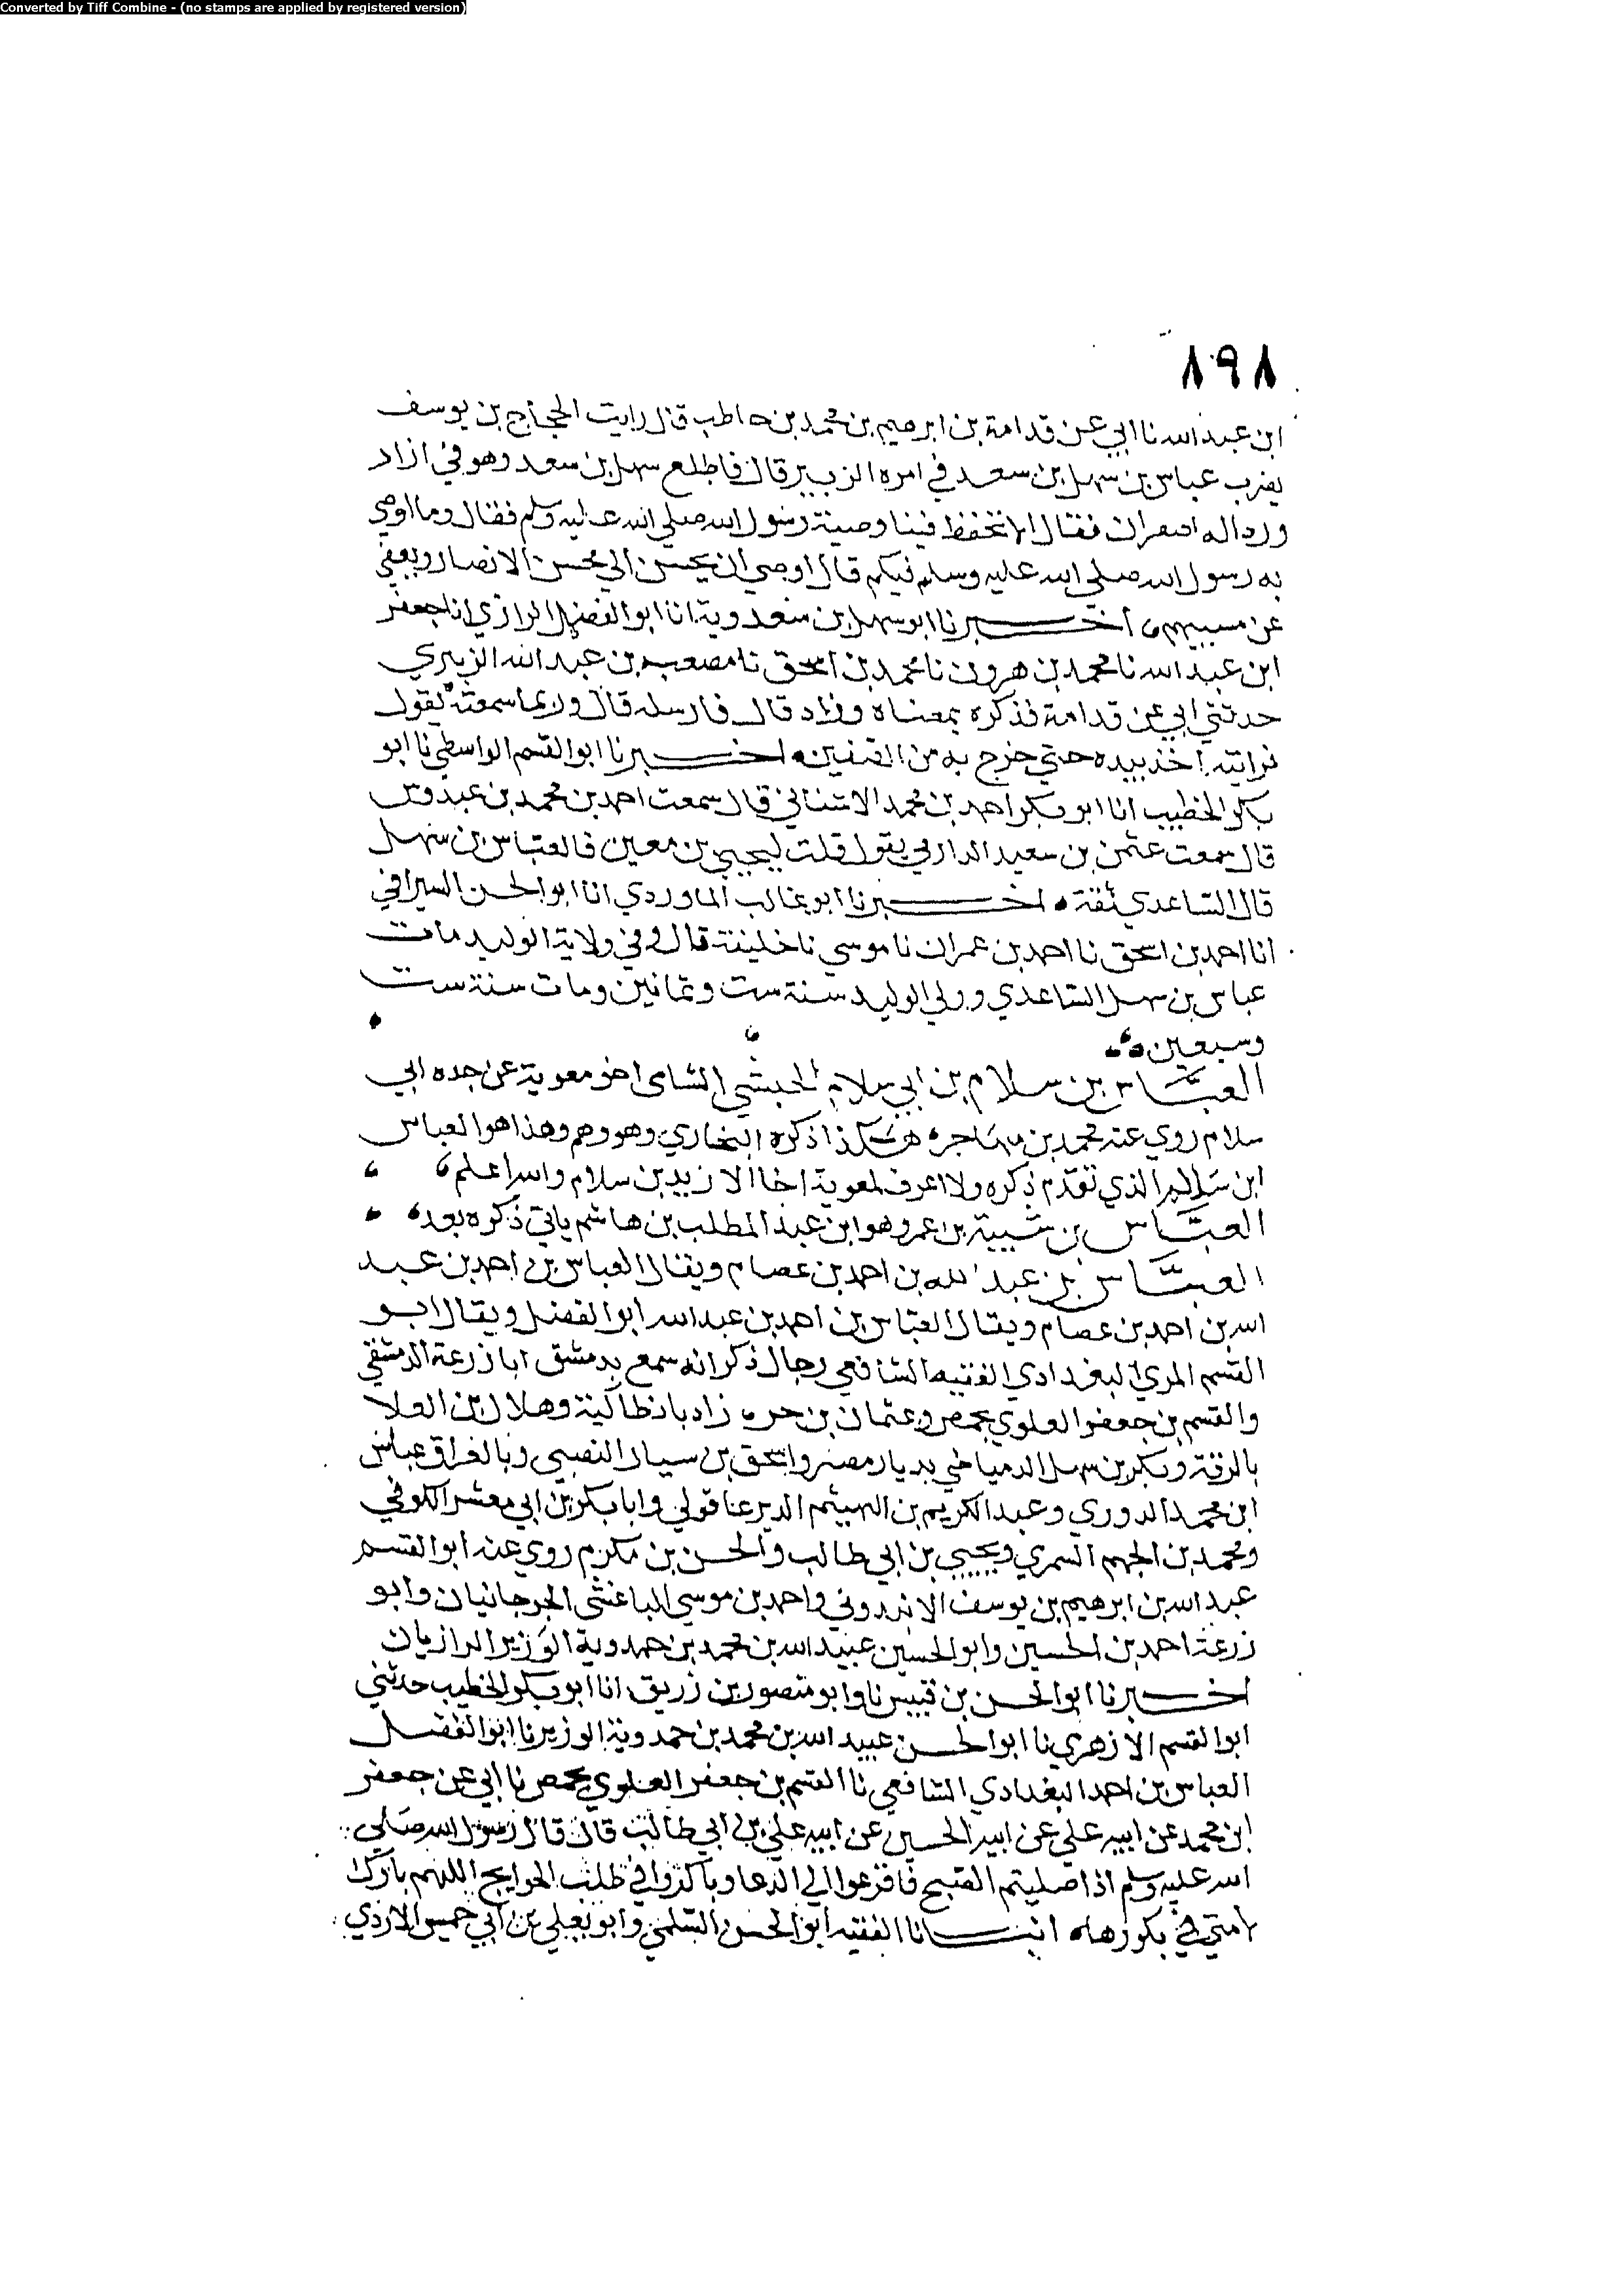 Converted by Tiff Combine - (no stamps are applied by registered version)
٨٩٨
ابن عبد الله نا ابي عن قدامة بن ابرهيم بن محمد بن حاطب قال رايت الحجاج بن يوسف
يضرب عباس بن سهل بن سعد في امره الزبير قال فاطلع سهل بن سعد وهو في ازار
وردا له اصفران فقال الا تحفظ فينا وصية رسول الله صلى الله عليه وسلم فقال وما اوصي
به رسول الله صلى الله عليه وسلم فيكم قال اوصي ان يحسن الي محسن الانصار ويعفي
عن مسييهم اخبرنا ابو سهل بن سعدوية انا ابو الفضل الرازي انا جعفر
ابن عبد الله نا محمد بن هرون نا محمد بن اسحق نا مصعب بن عبد الله الزبيري
حدثني ابي عن قدامة فذكره بمعناه وزاد قال فارسله قال وربما سمعته يقول
فرايته اخذ بيده حتي خرج به من الصفين اخبرنا ابو القسم الواسطي نا ابو
بكر الخطيب انا ابو بكر احمد بن محمد الاشناني قال سمعت احمد بن محمد بن عبدوس
قال سمعت عثمن بن سعيد الدارمي يقول قلت ليحيي بن معين فالعباس بن سهل
قال الساعدي ثقة اخبرنا ابو غالب الماوردي انا ابو الحسن السيرافي
انا احمد بن اسحق نا احمد بن عمران نا موسي نا خليفة قال وفي ولاية الوليد مات
عباس بن سهل الساعدي وولي الوليد سنة ست وثمانين ومات سنة ست
وسبعين
العباس بن سلام بن ابي سلام الحبشي الشامي اخو معوية عن جده ابي
سلام روي عنه محمد بن مهاجر هكذا ذكره البخاري وهو وهم وهذا هو العباس
ابن سالم الذي تقدم ذكره ولا اعرف لمعوية اخا الا زيد بن سلام والله اعلم
العباس بن شيبة بن عمرو هو ابن عبد المطلب بن هاشم ياتي ذكره بعد
العباس بن عبد الله بن احمد بن عصام ويقال العباس بن احمد بن عبد
الله بن احمد بن عصام ويقال العباس بن احمد بن عبد الله ابو الفضل ويقال ابو
القسم المزني البغدادي الفقيه الشافعي رحال ذكر انه سمع بدمشق ابا زرعة الدمشقي
والقسم بن جعفر العلوي بحمص وعثمان بن خرزاد بانطاكية وهلال بن العلا
بالرقة وبكر بن سهل الدمياطي بديار مصر واسحق بن سيار النصيبي وبالعراق عباس
ابن محمد الدوري وعبد الكريم بن الهيثم الديرعاقولي وابا بكر بن ابي معشر الكوفي
ومحمد بن الجهم السمري ويحيي بن ابي طالب والحسن بن مكرم روي عنه ابو القسم
عبد الله بن ابرهيم بن يوسف الابندوني واحمد بن موسي الباغشي الجرجانيان وابو
زرعة احمد بن الحسين وابو الحسين عبيد الله بن محمد بن حمدوية الوزير الرازيان
اخبرنا ابو الحسن بن قبيس نا وابو منصور بن زريق انا ابو بكر الخطيب حدثني
ابو القسم الازهري نا ابو الحسن عبيد الله بن محمد بن حمدوية الوزير نا ابو الفضل
العباس بن احمد البغدادي الشافعي نا القسم بن جعفر العلوي بحمص نا ابي عن جعفر
ابن محمد عن ابيه علي عن ابيه الحسين عن ابيه علي بن ابي طالب قال قال رسول الله صلى
الله عليه وسلم اذا صليتم الصبح فافزعوا الي الدعا وباكروا في طلب الحوايج اللهم بارك
لامتي في بكورها انبانا الفقيه ابو الحسن السلمي وابو يعلي بن ابي خميس الازدي